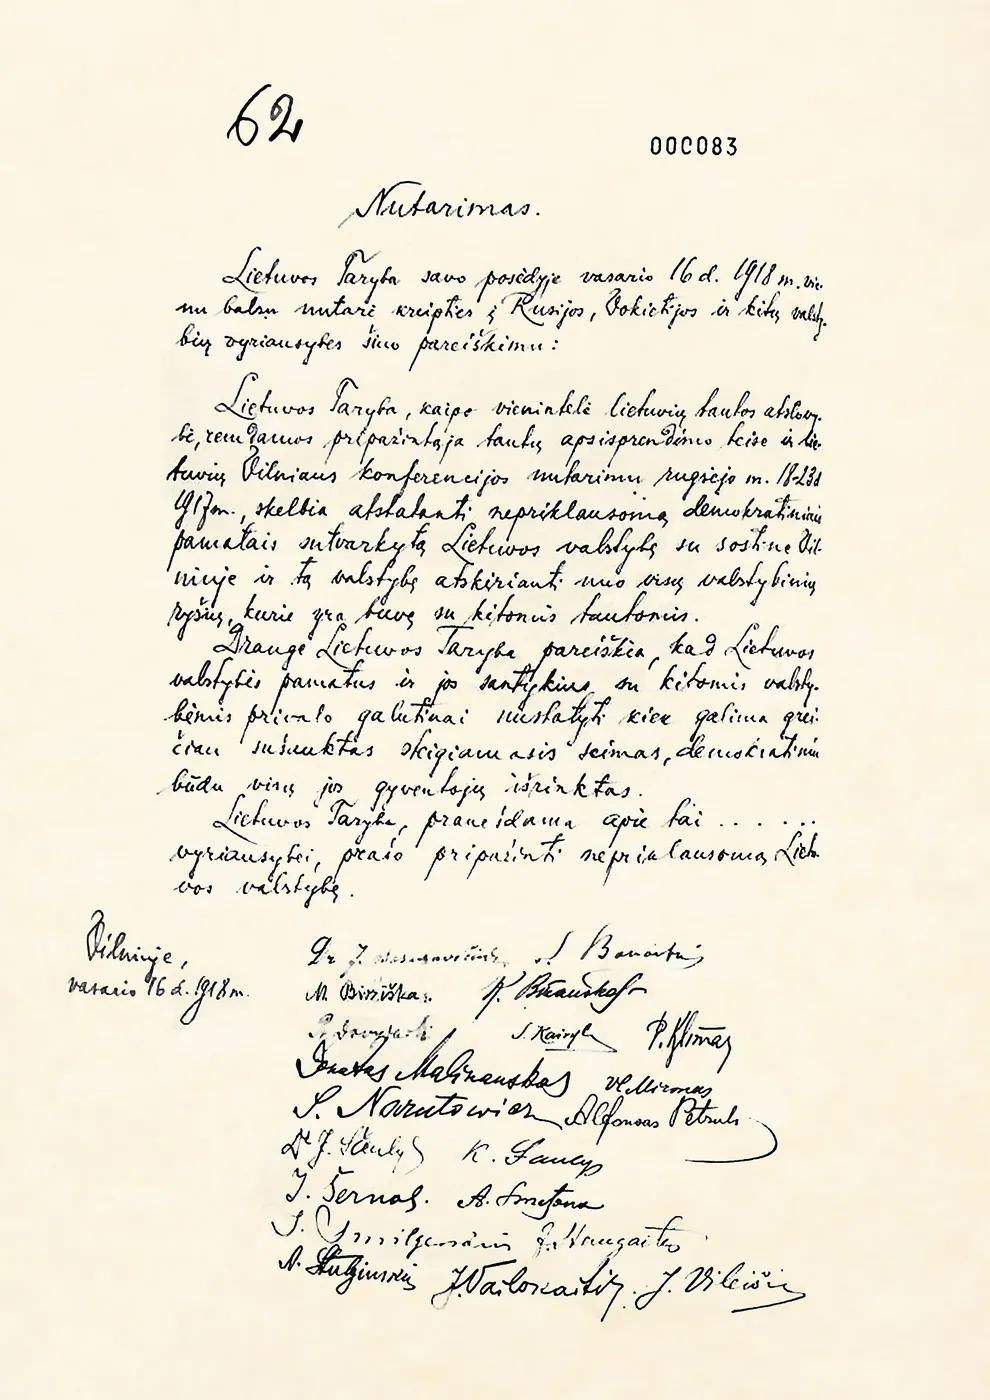 62
000083
Nutarimas.
Lietuvos Taryba savo posėdyje vasario 16 d. 1918 m. vie-
nu balsu nutarė kreipties į Rusijos, Vokietijos ir kitų valsty-
bių vyriausybes šiuo pareiškimu:
Lietuvos Taryba, kaipo vienintelė lietuvių tautos atstovy-
bė, remdamos pripažintąja tautų apsisprendimo teise ir lie-
tuvių Vilniaus konferencijos nutarimu rugsėjo m. 18-23 d
1917 m., skelbia atstatanti nepriklausomą demokratiniais
pamatais sutvarkytą Lietuvos valstybę su sostine Vil-
niuje ir tą valstybę atskirianti nuo visų valstybinių
ryšių, kurie yra buvę su kitomis tautomis.
Drauge Lietuvos Taryba pareiškia, kad Lietuvos
valstybės pamatus ir jos santykius su kitomis valsty-
bėmis privalo galutinai nustatyti kiek galima grei-
čiau sušauktas steigiamasis seimas, demokratiniu
būdu visų jos gyventojų išrinktas.
Lietuvos Taryba, pranešdama apie tai . . . . . .
vyriausybei, prašo pripažinti nepriklausomą Lietu-
vos valstybę.
Vilniuje,
vasario 16 d. 1918 m.
Dr J. Basanavičius S. Banaitis
M. Biržiška K. Bizauskas
P. Dovydaitis S. Kairys P. Klimas
Donatas Malinauskas Vl. Mironas
S. Narutowicz Alfonsas Petrulis
Dr J. Šaulys K. Šaulys
J. Šernas. A. Smetona
J. Smilgevičius J. Staugaitis
A. Stulginskis J. Vailokaitis. J. Vileišis